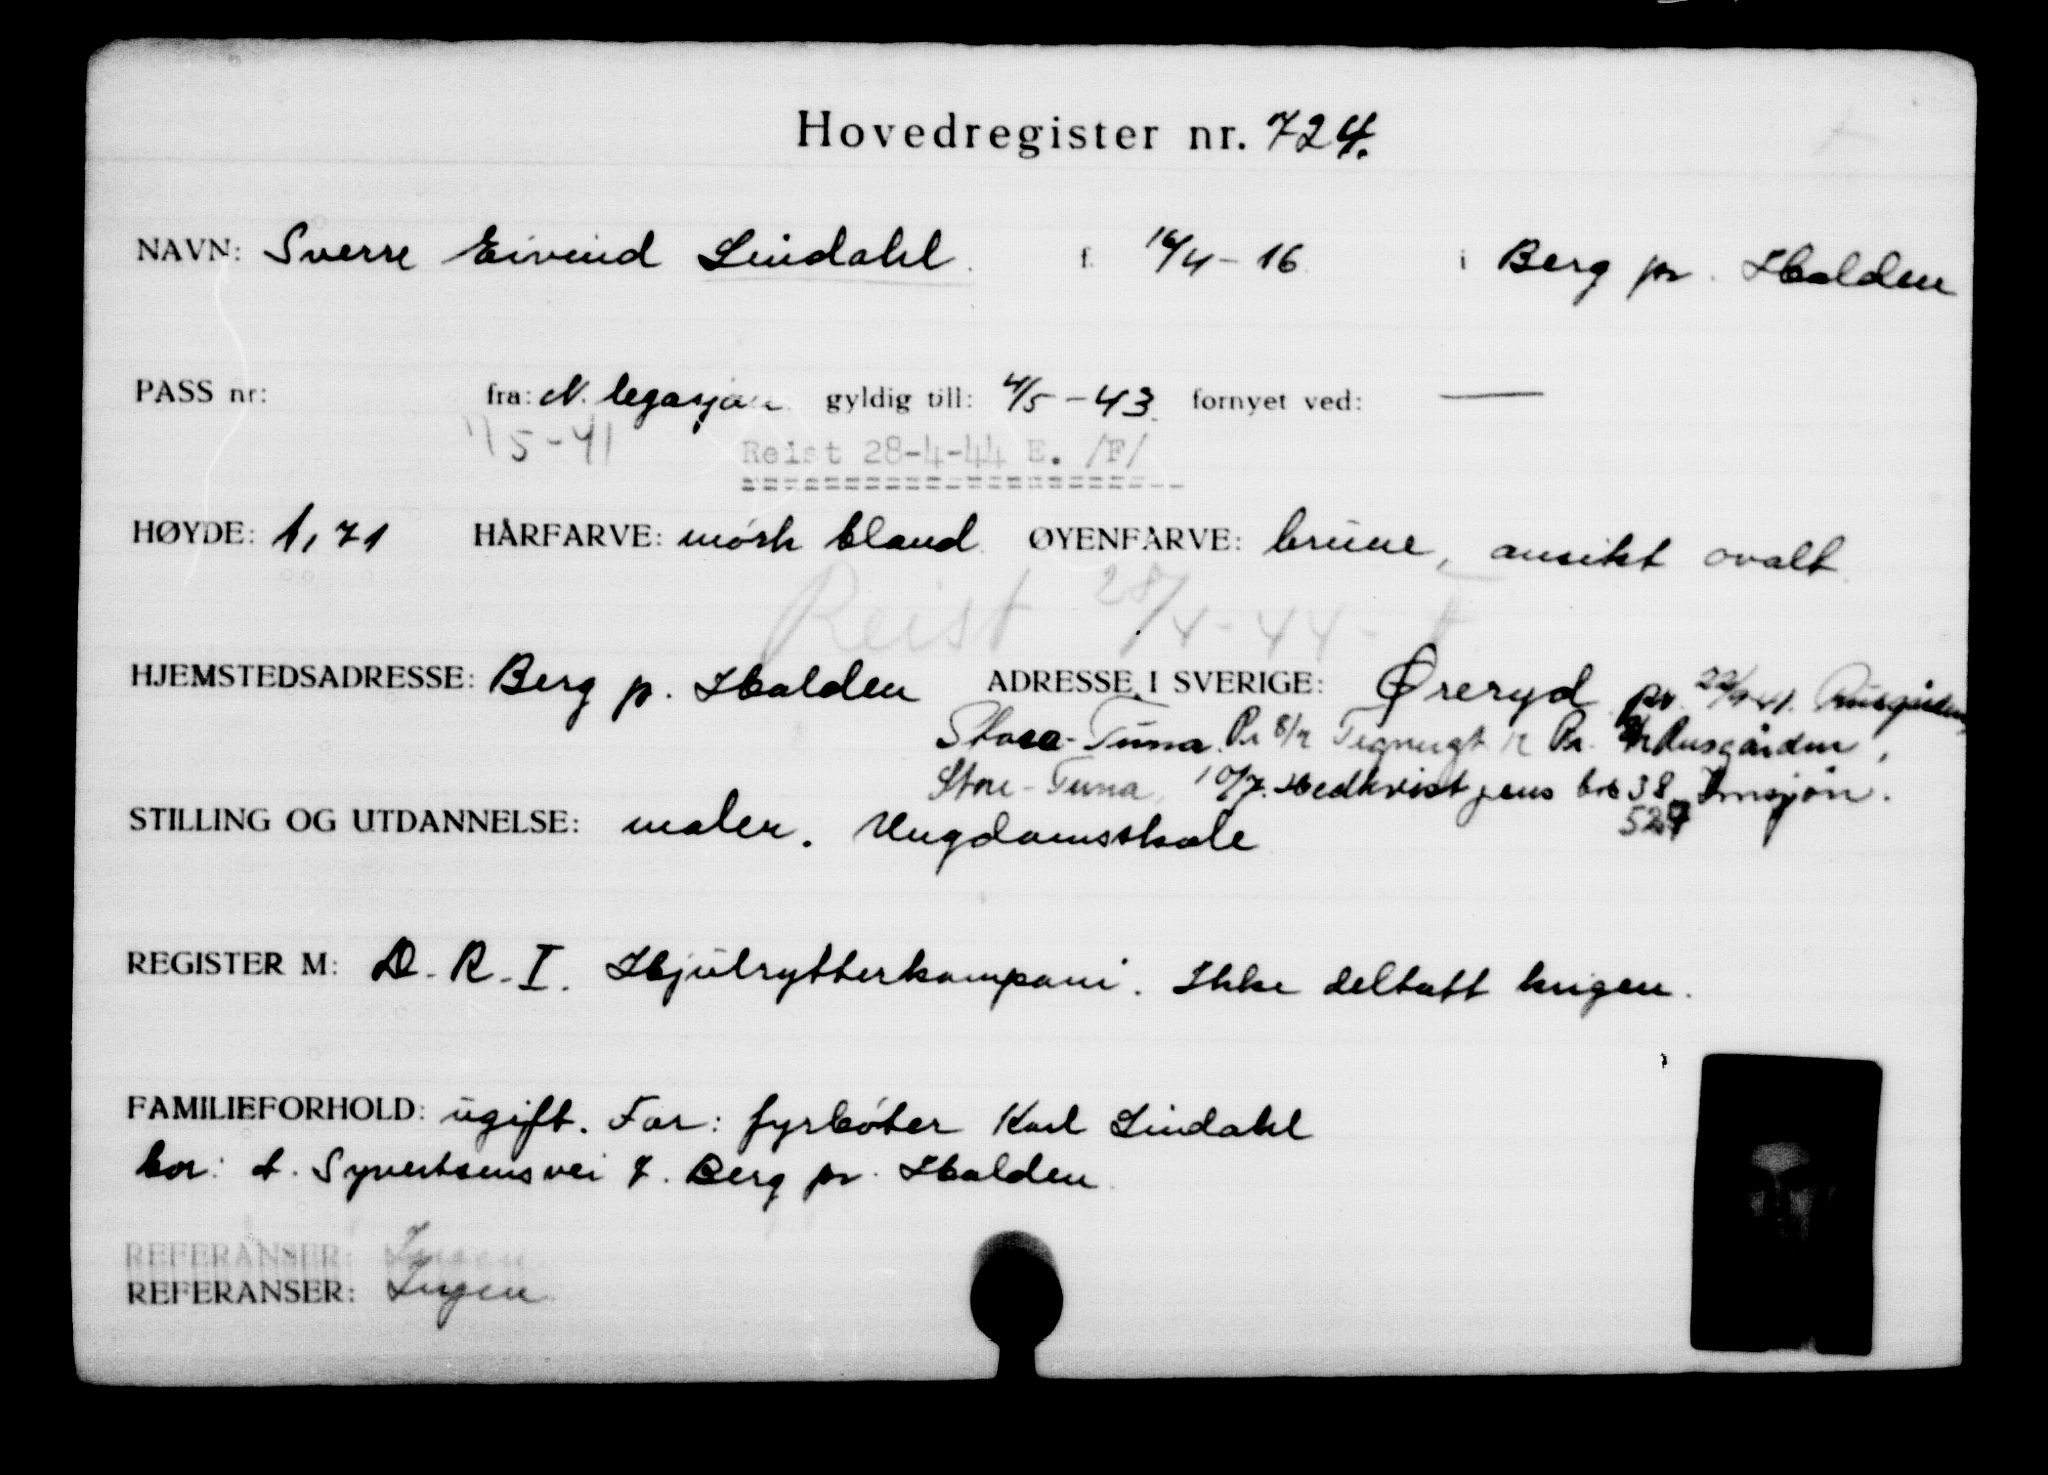 Hovedregister nr. 724.
NAVN: Sverre Eivind Lindahl. f. 16/4-16 i Berg pr. Halden
PASS nr: fra: N. legasjon gyldig till: 4/5-43. fornyet ved: —
5-41 Reist 28-4-44 E. /F/
HØYDE: 1,71 HÅRFARVE: mørk bland ØYENFARVE: brune, ansikt ovalt
Reist 28/4-44
HJEMSTEDSADRESSE: Berg p. Halden ADRESSE I SVERIGE: Øreryd pr.
Stora-Tuna. Pr 8/ Pr. Rusgården,
Store-Tuna, 10/7. Hedkvist pens 38 Insjön.
STILLING OG UTDANNELSE: maler. Ungdomsskole 527
REGISTER M: D.R.I. Hjulrytterkompani. Ikke deltatt krigen.
FAMILIEFORHOLD: ugift. Far: fyrbøter Karl Lindahl
bor: A. Syvertsens vei 7. Berg pr. Halden
REFERANSER: Ingen
REFERANSER: Ingen